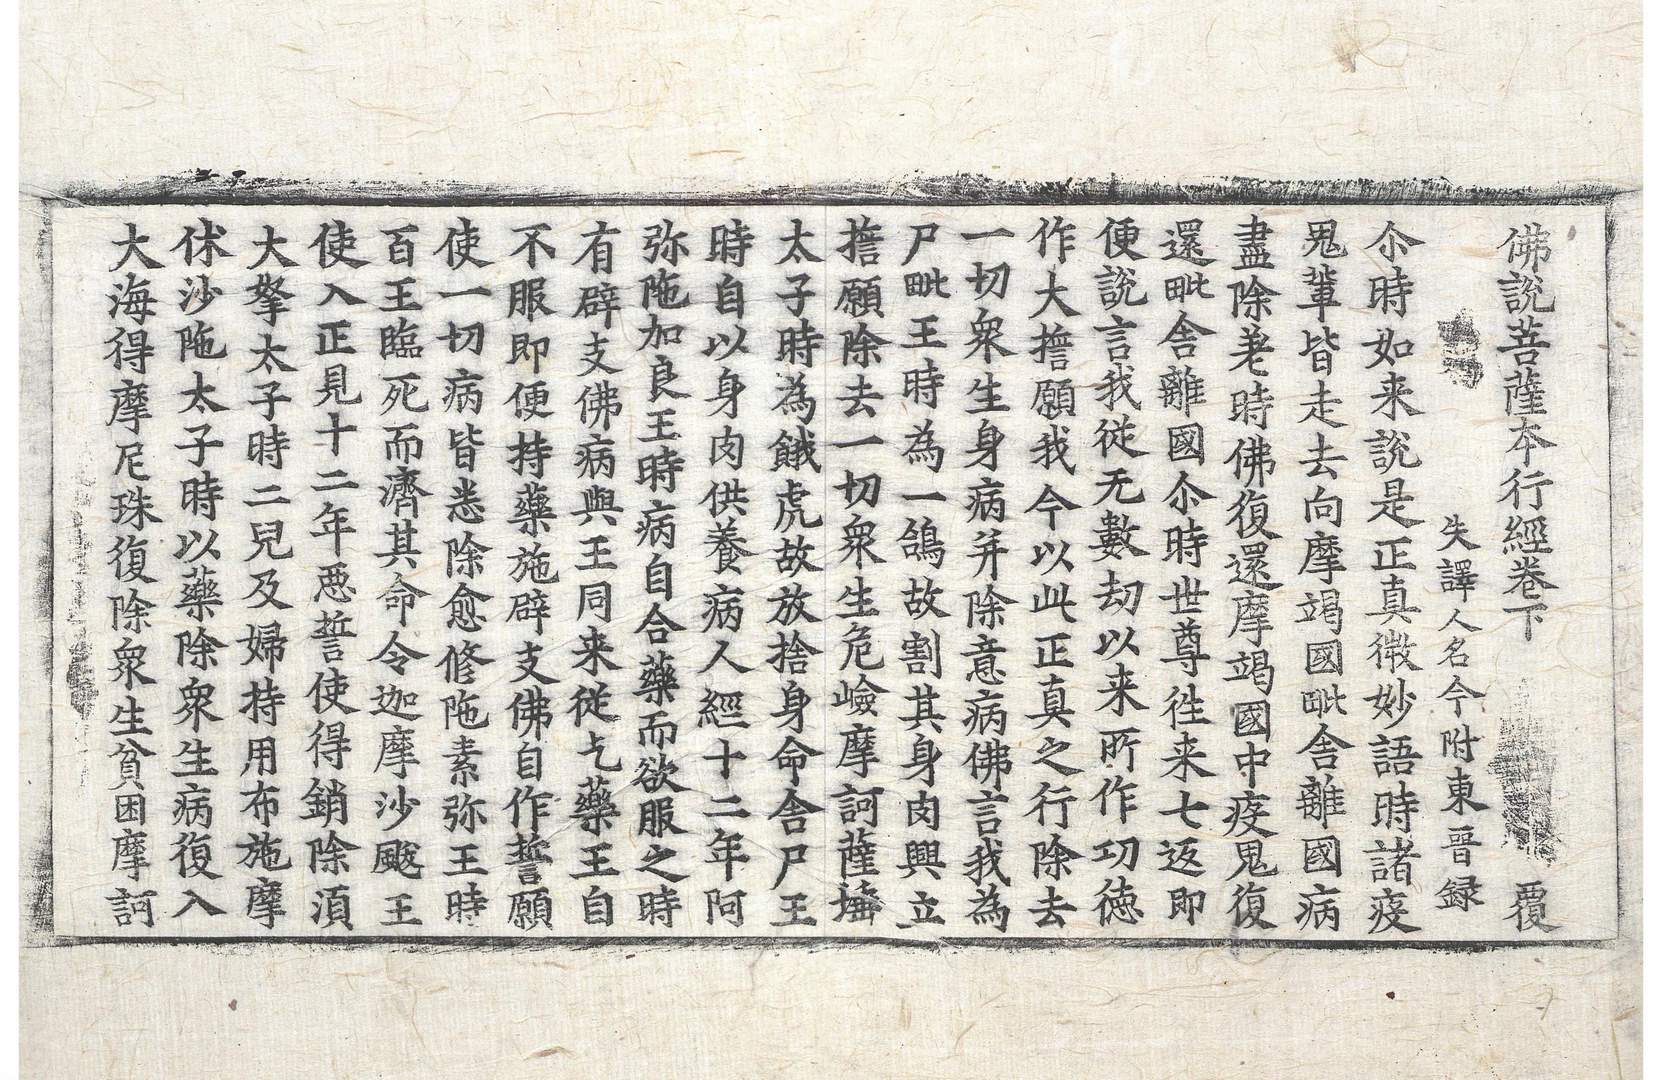 佛說菩薩本行經卷下 覆
失譯人名今附東晉録
尒時如来說是正真微妙語時諸疫
鬼輩皆走去向摩竭國毗舍離國病
盡除差時佛復還摩竭國中疫鬼復
還毗舍離國尒時世尊徃来七返即
便說言我從无數劫以来所作功德
作大擔願我今以此正真之行除去
一切衆生身病并除意病佛言我為
尸毗王時為一鴿故割其身肉興立
擔願除去一切衆生危嶮摩訶薩埵
太子時為餓虎故放捨身命舍尸王
時自以身肉供養病人經十二年阿
弥陁加良王時病自合藥而欲服之時
有辟支佛病與王同来從乞藥王自
不服即便持藥施辟支佛自作誓願
使一切病皆悉除愈修陁素弥王時
百王臨死而濟其命令迦摩沙颰王
使入正見十二年惡誓使得銷除湏
大拏太子時二兒及婦持用布施摩
休沙陁太子時以藥除衆生病復入
大海得摩尼珠復除衆生貧困摩訶